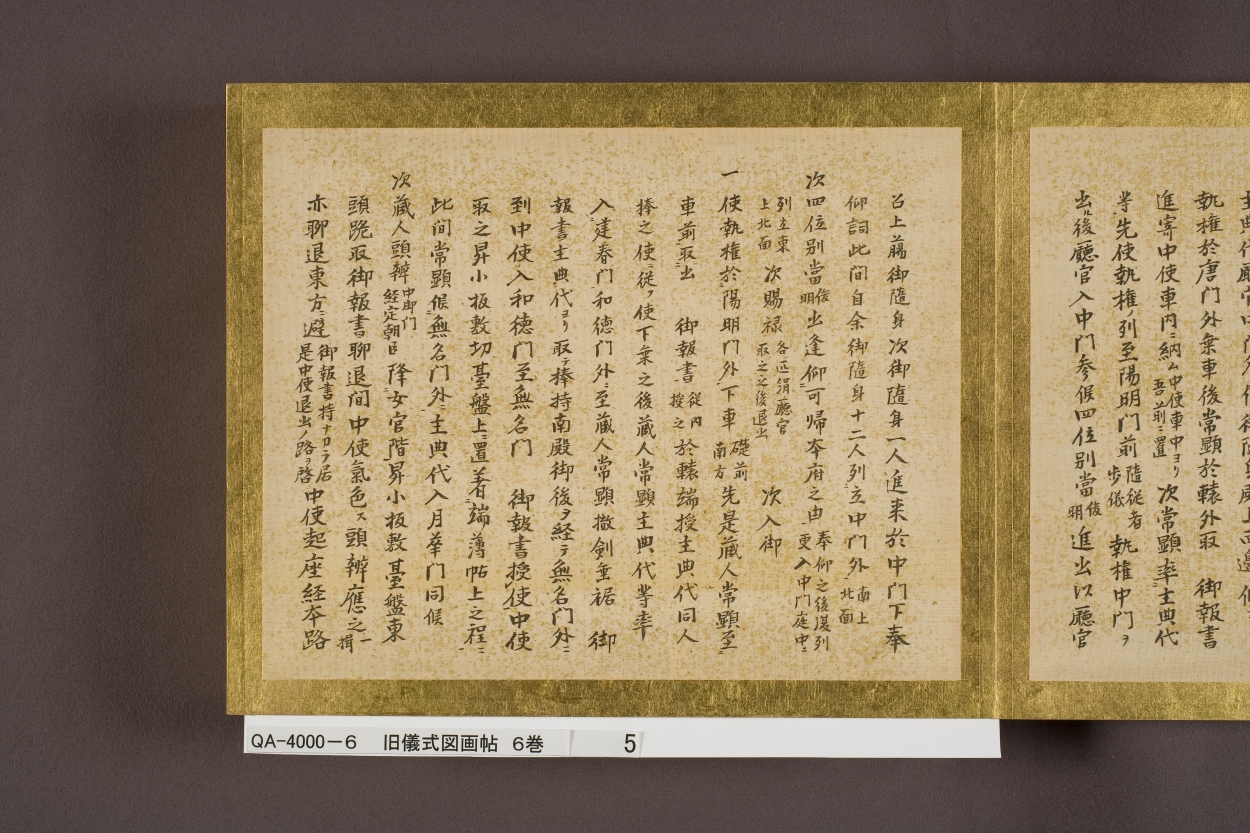 執權於唐門外棄車後常顕於轅外取　御報書
進寄中使車内ニ納ム中使車中ヨリ吾前ニ置　次常顕率主典代
等先使執權ノ列至陽明門前隨従者歩儀　執權中門ヲ
出ル後廳官入中門参候四位别當俊明進出以廳官
召上﨟御隨身次御隨身一人進来於中門下奉
仰詞此間自余御隨身十二人列立中門外南上北面
次四位别當俊明出逢仰可歸本府之由奉仰之後退列更入中門庭中ニ
列立東上北面　次賜禄各疋絹廳官取之之後退出　次入御
一使執權於陽明門外下車礎前南方先是蔵人常顕至
車前取出　御報書従内授之於轅端授主典代同人
捧之使ニ従ノ使下棄之後蔵人常顕主典代等率
入建春門和徳門外ニ至蔵人常顕撤剣垂裾　御
報書主典代ヨリ取テ捧持南殿御後ヲ経テ無名門外ニ
到中使入和徳門至無名門　御報書授使中使
取之昇小板敷切臺盤上ニ置着端薄帖上之程ニ
此間常顕候無名門外ニ主典代入月華門同候
次蔵人頭辨中御門経定朝臣降女官階昇小板敷臺盤東
頭跪取御報書聊退間中使氣色ス頭辨應之一揖
亦聊退東方ニ避御報書持ナカラ居是中使退出ノ路ヲ啓中使起座経本路
QA-4000-6　旧儀式図画帖　6巻　5